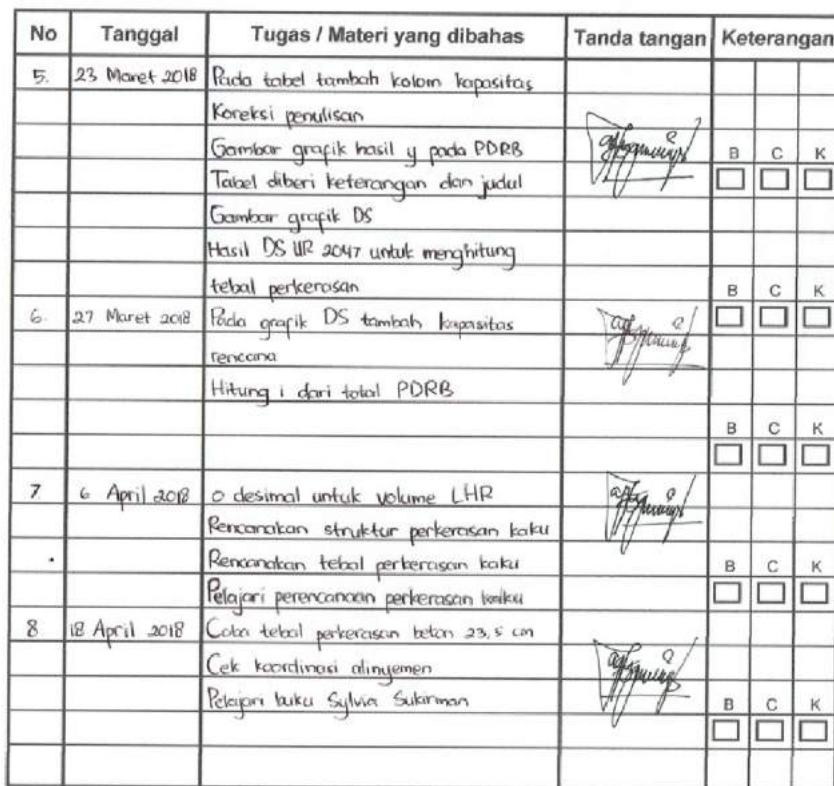 No Tanggal Tugas / Materi yang dibahas Tanda tangan Keterangan
5. 23 Maret 2018 Pada tabel tambah kolom kapasitas
Koreksi penulisan
Gambar grafik hasil y pada PDRB B C K
Tabel diberi keterangan dan judul
Gambar grafik DS
Hasil DS UR 2047 untuk menghitung
tebal perkerasan B C K
6. 27 Maret 2018 Pada grafik DS tambah kapasitas
rencana
Hitung i dari total PDRB
B C K
7 6 April 2018 0 desimal untuk volume LHR
Rencanakan struktur perkerasan kaku
Rencanakan tebal perkerasan kaku B C K
Pelajari perencanaan perkerasan kaku
8 18 April 2018 Coba tebal perkerasan beton 23,5 cm
Cek koordinasi alinyemen
Pelajari buku Sylvia Sukirman B C K